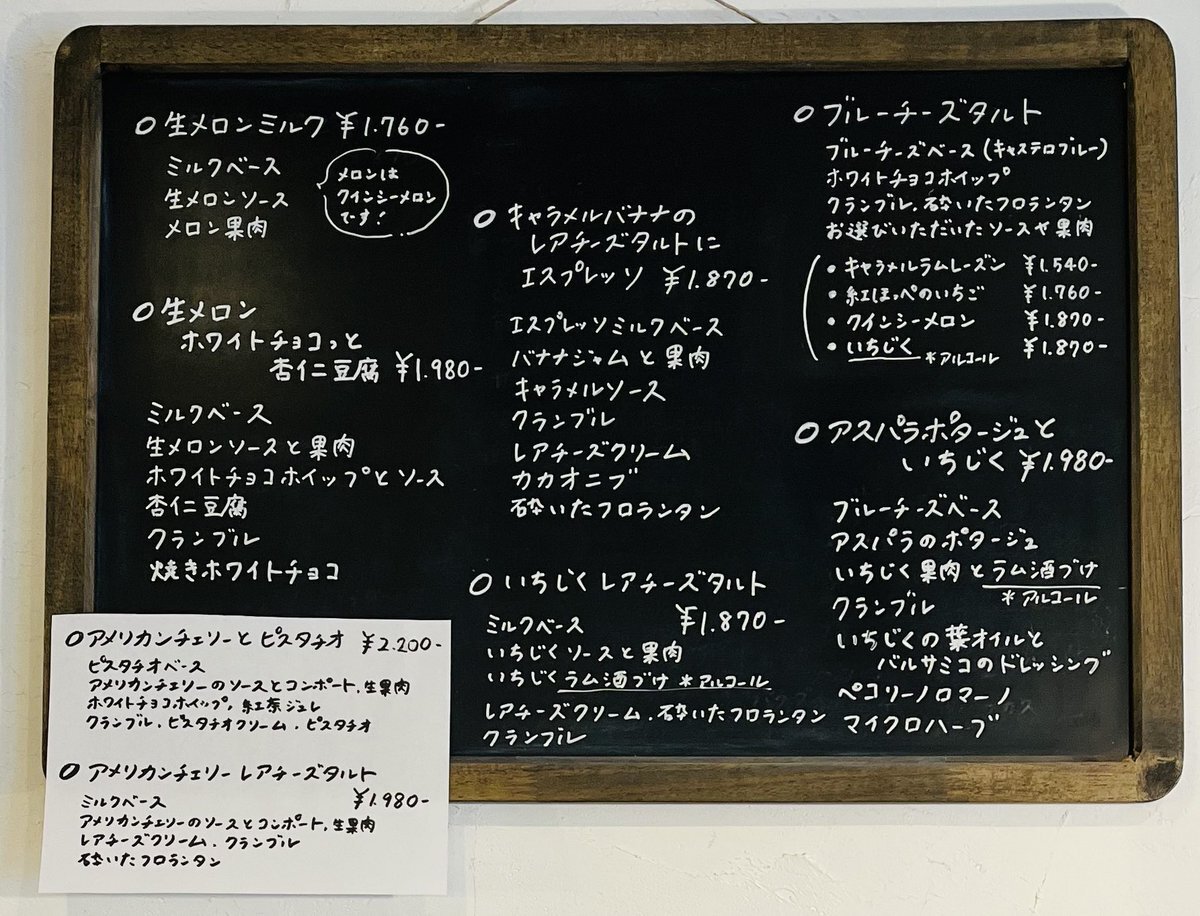 ○生メロンミルク ¥1.760-
ミルクベース
生メロンソース
メロン果肉
メロンは
クインシーメロン
です!
○生メロン
ホワイトチョコっと
杏仁豆腐 ¥1.980-
ミルクベース
生メロンソースと果肉
ホワイトチョコホイップとソース
杏仁豆腐
クランブル
焼きホワイトチョコ
○アメリカンチェリーとピスタチオ ¥2.200-
ピスタチオベース
アメリカンチェリーのソースとコンポート,生果肉
ホワイトチョコホイップ,紅茶ジュレ
クランブル.ピスタチオクリーム.ピスタチオ
○アメリカンチェリーレアチーズタルト
¥1.980-
ミルクベース
アメリカンチェリーのソースとコンポート,生果肉
レアチーズクリーム.クランブル
砕いたフロランタン
○キャラメルバナナの
レアチーズタルトに
エスプレッソ ¥1.870-
エスプレッソミルクベース
バナナジャムと果肉
キャラメルソース
クランブル
レアチーズクリーム
カカオニブ
砕いたフロランタン
○いちじくレアチーズタルト
¥1.870-
ミルクベース
いちじくソースと果肉
いちじくラム酒づけ *アルコール
レアチーズクリーム.砕いたフロランタン
クランブル
○ブルーチーズタルト
ブルーチーズベース(キャステロブルー)
ホワイトチョコホイップ
クランブル.砕いたフロランタン
お選びいただいたソースや果肉
•キャラメルラムレーズン ¥1.540-
•紅ほっぺのいちご ¥1.760-
•クインシーメロン ¥1.870-
•いちじく *アルコール ¥1.870-
○アスパラポタージュと
いちじく ¥1.980-
ブルーチーズベース
アスパラのポタージュ
いちじく果肉とラム酒づけ
*アルコール
クランブル
いちじくの葉オイルと
バルサミコのドレッシング
ペコリーノロマーノ
マイクロハーブ